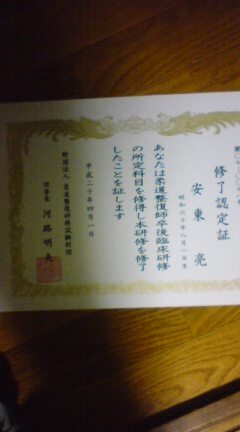 修了認定証
安東亮
昭和六十年八月一日生
あなたは柔道整復師卒後臨床研修
の所定科目を修得し本研修を修了
したことを証します
平成二十年四月一日
財団法人 柔道整復研修試験財団
理事長 河路明夫